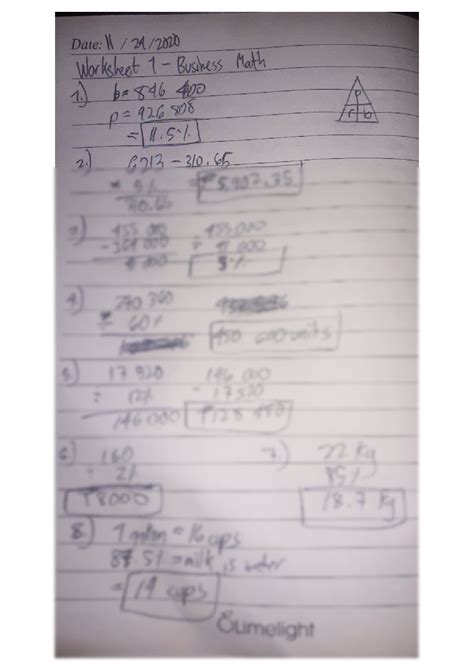 Date: 11 / 29 / 2020
Worksheet 1 - Business Math
1.) b = 846 400
P = 926 808
= 11.5%
P
r b
2.) 6213 - 310.65
* 5% = ₱5,902.35
310.65
3) 455 000 455 000
4) 270 360
÷ 60% 450 600 units
5.) 17 520 146 000
÷ 12% - 17520
146 000 ₱128 480
6) 160 7.) 22 kg
÷ 2% 85%
₱8000 18.7 kg
8.) 1 gallon = 16 cups
87.5% = milk is water
= 14 cups
Limelight